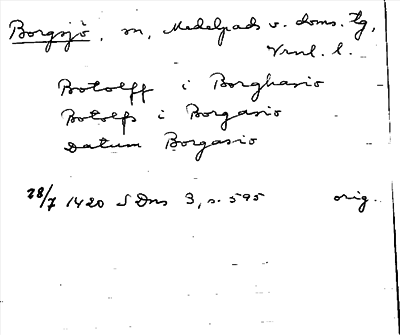 Borgsjö, sn, Medelpads v. doms. tg,
Vrnl. l.
Botolff i Borghasio
Botolfs i Borgasio
Datum Borgasio
28/7 1420 SDns 3, s. 595 orig.